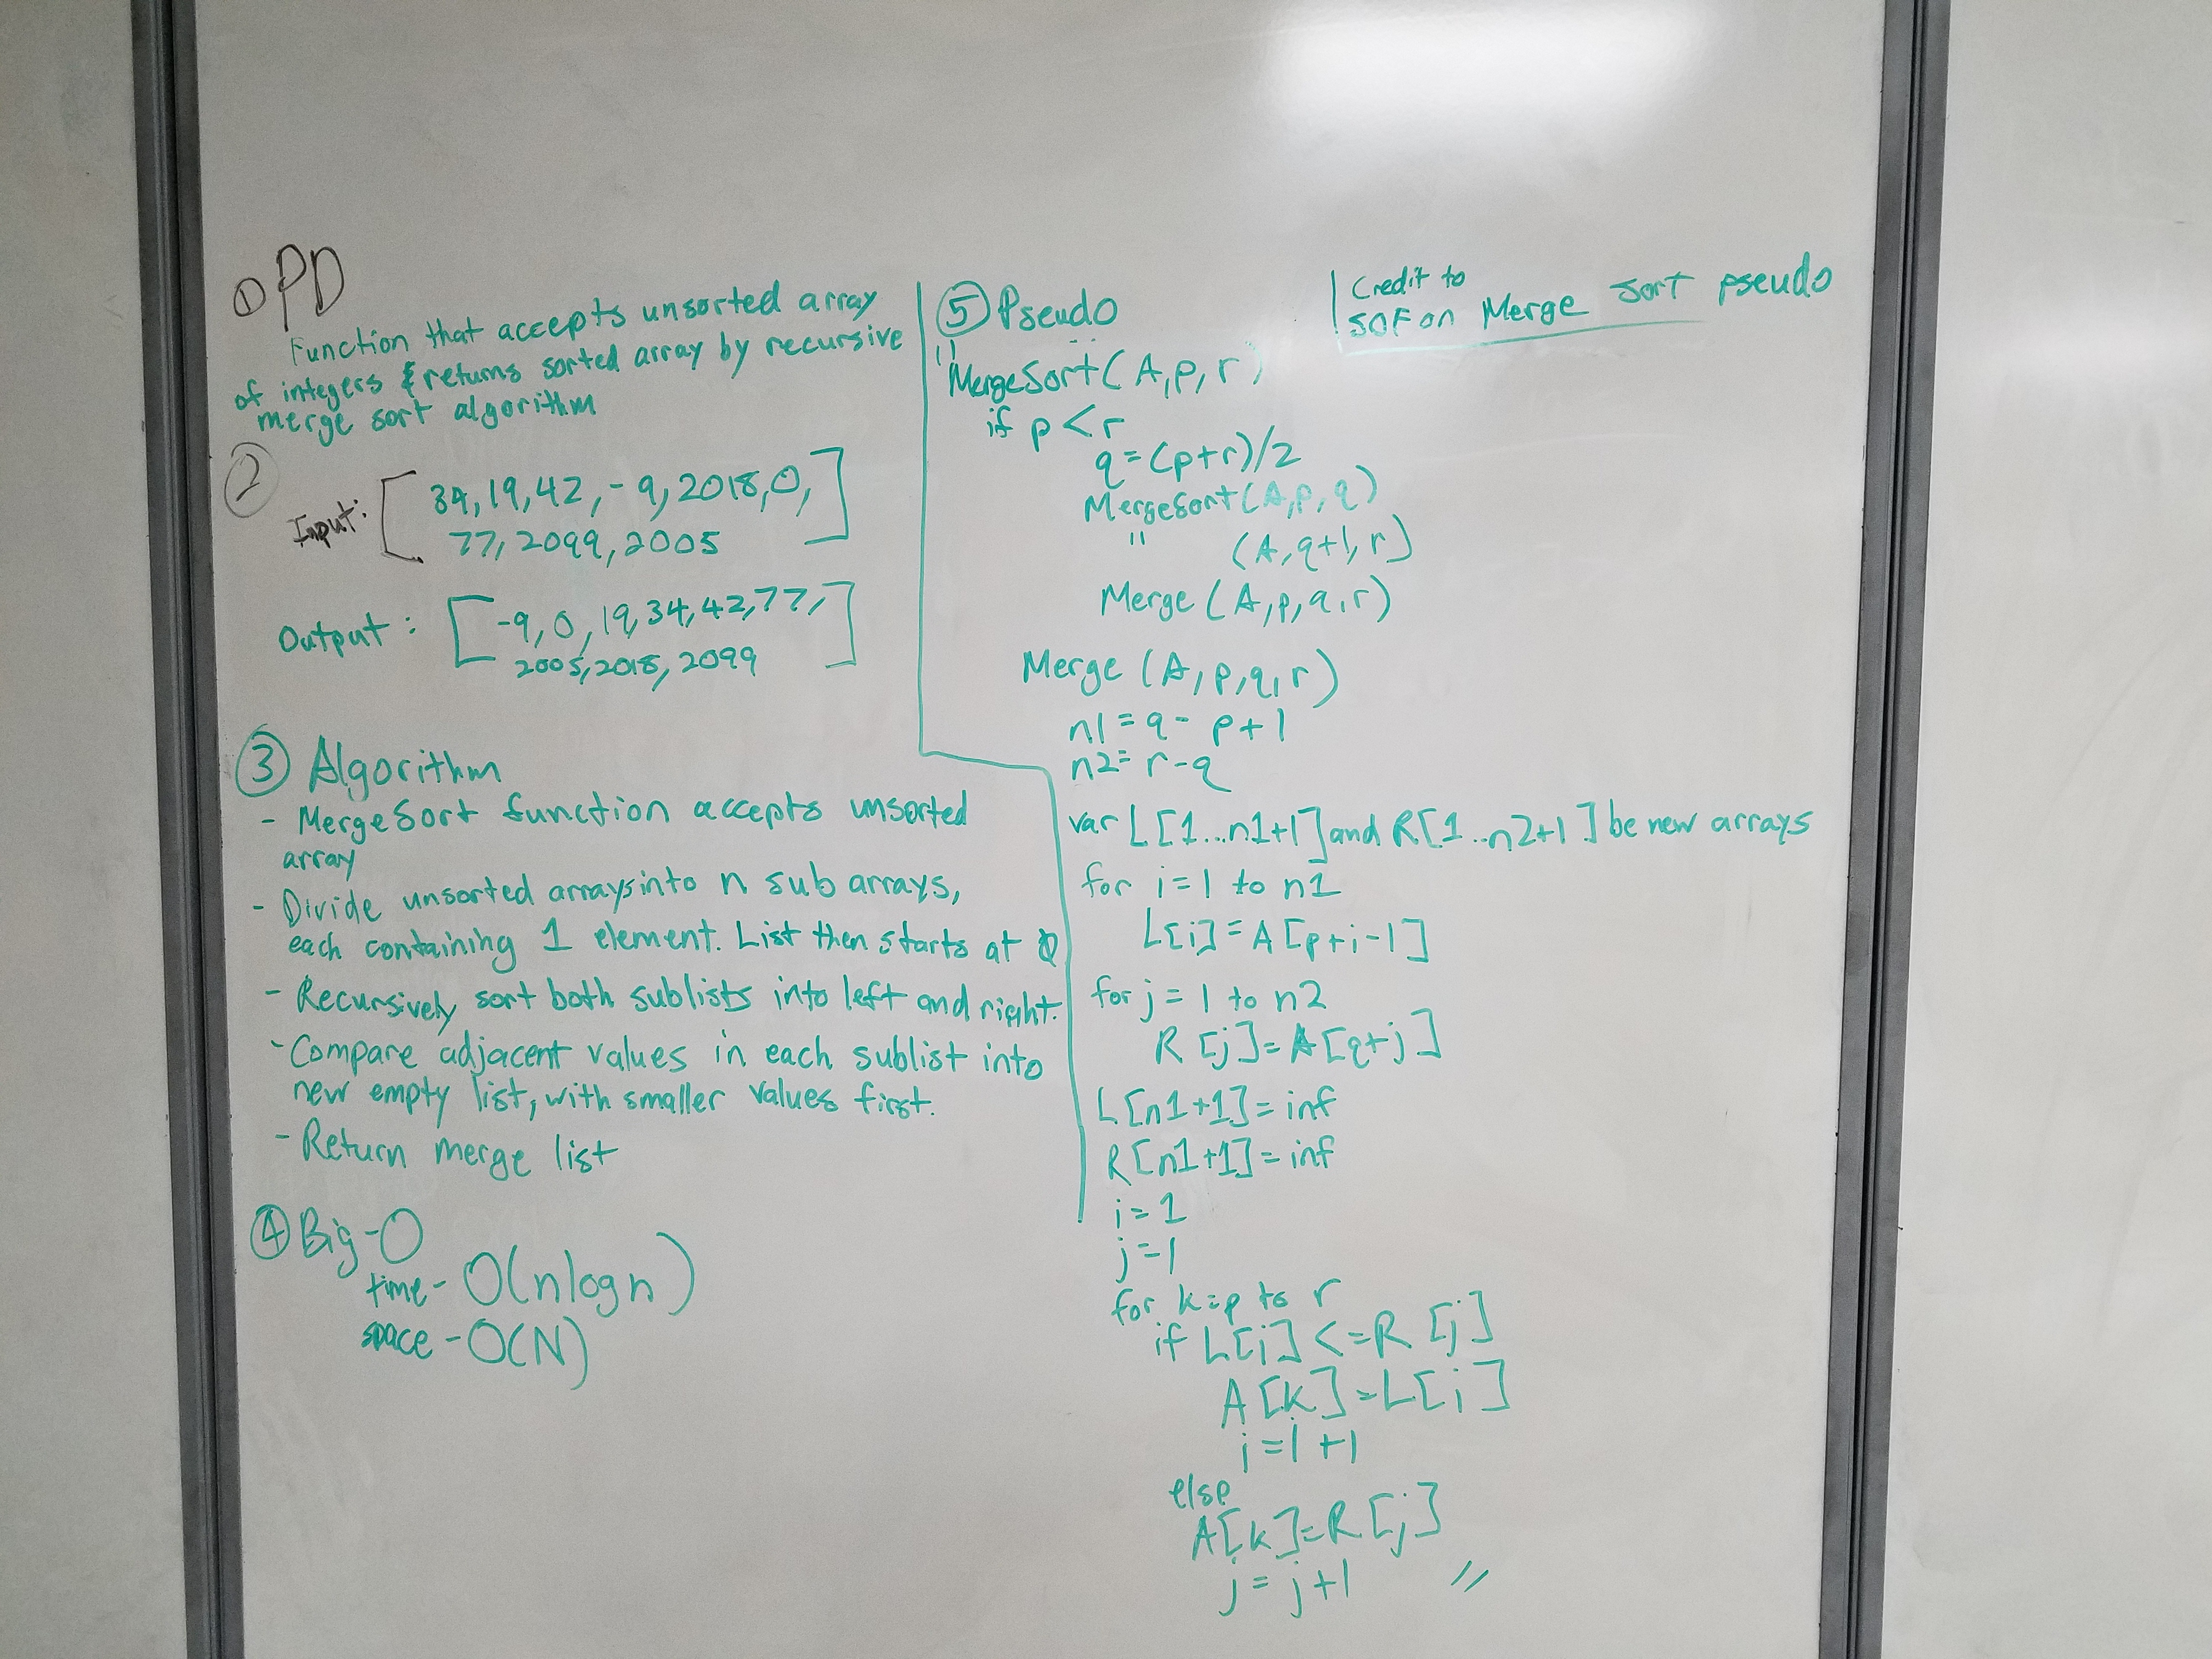 ① PD
Function that accepts unsorted array
of integers & returns sorted array by recursive
merge sort algorithm
②
Input: [34, 19, 42, -9, 2018, 0,
77, 2099, 2005]
Output: [-9, 0, 19, 34, 42, 77,
2005, 2018, 2099]
③ Algorithm
- MergeSort function accepts unsorted
array
- Divide unsorted arrays into n sub arrays,
each containing 1 element. List then starts at 0
- Recursively sort both sublists into left and right.
- Compare adjacent values in each sublist into
new empty list, with smaller values first.
- Return merge list
④ Big-O
time - O(nlogn)
space - O(N)
⑤ Pseudo
Credit to
SOF on Merge Sort pseudo
"
MergeSort(A, p, r)
if p < r
q = (p+r)/2
MergeSort(A, p, q)
" (A, q+1, r)
Merge (A, p, q, r)
Merge (A, p, q, r)
n1 = q - p + 1
n2 = r - q
var L[1...n1+1] and R[1...n2+1] be new arrays
for i = 1 to n1
L[i] = A[p+i-1]
for j = 1 to n2
R[j] = A[q+j]
L[n1+1] = inf
R[n1+1] = inf
i = 1
j = 1
for k = p to r
if L[i] <= R[j]
A[k] = L[i]
i = i + 1
else
A[k] = R[j]
j = j + 1 "